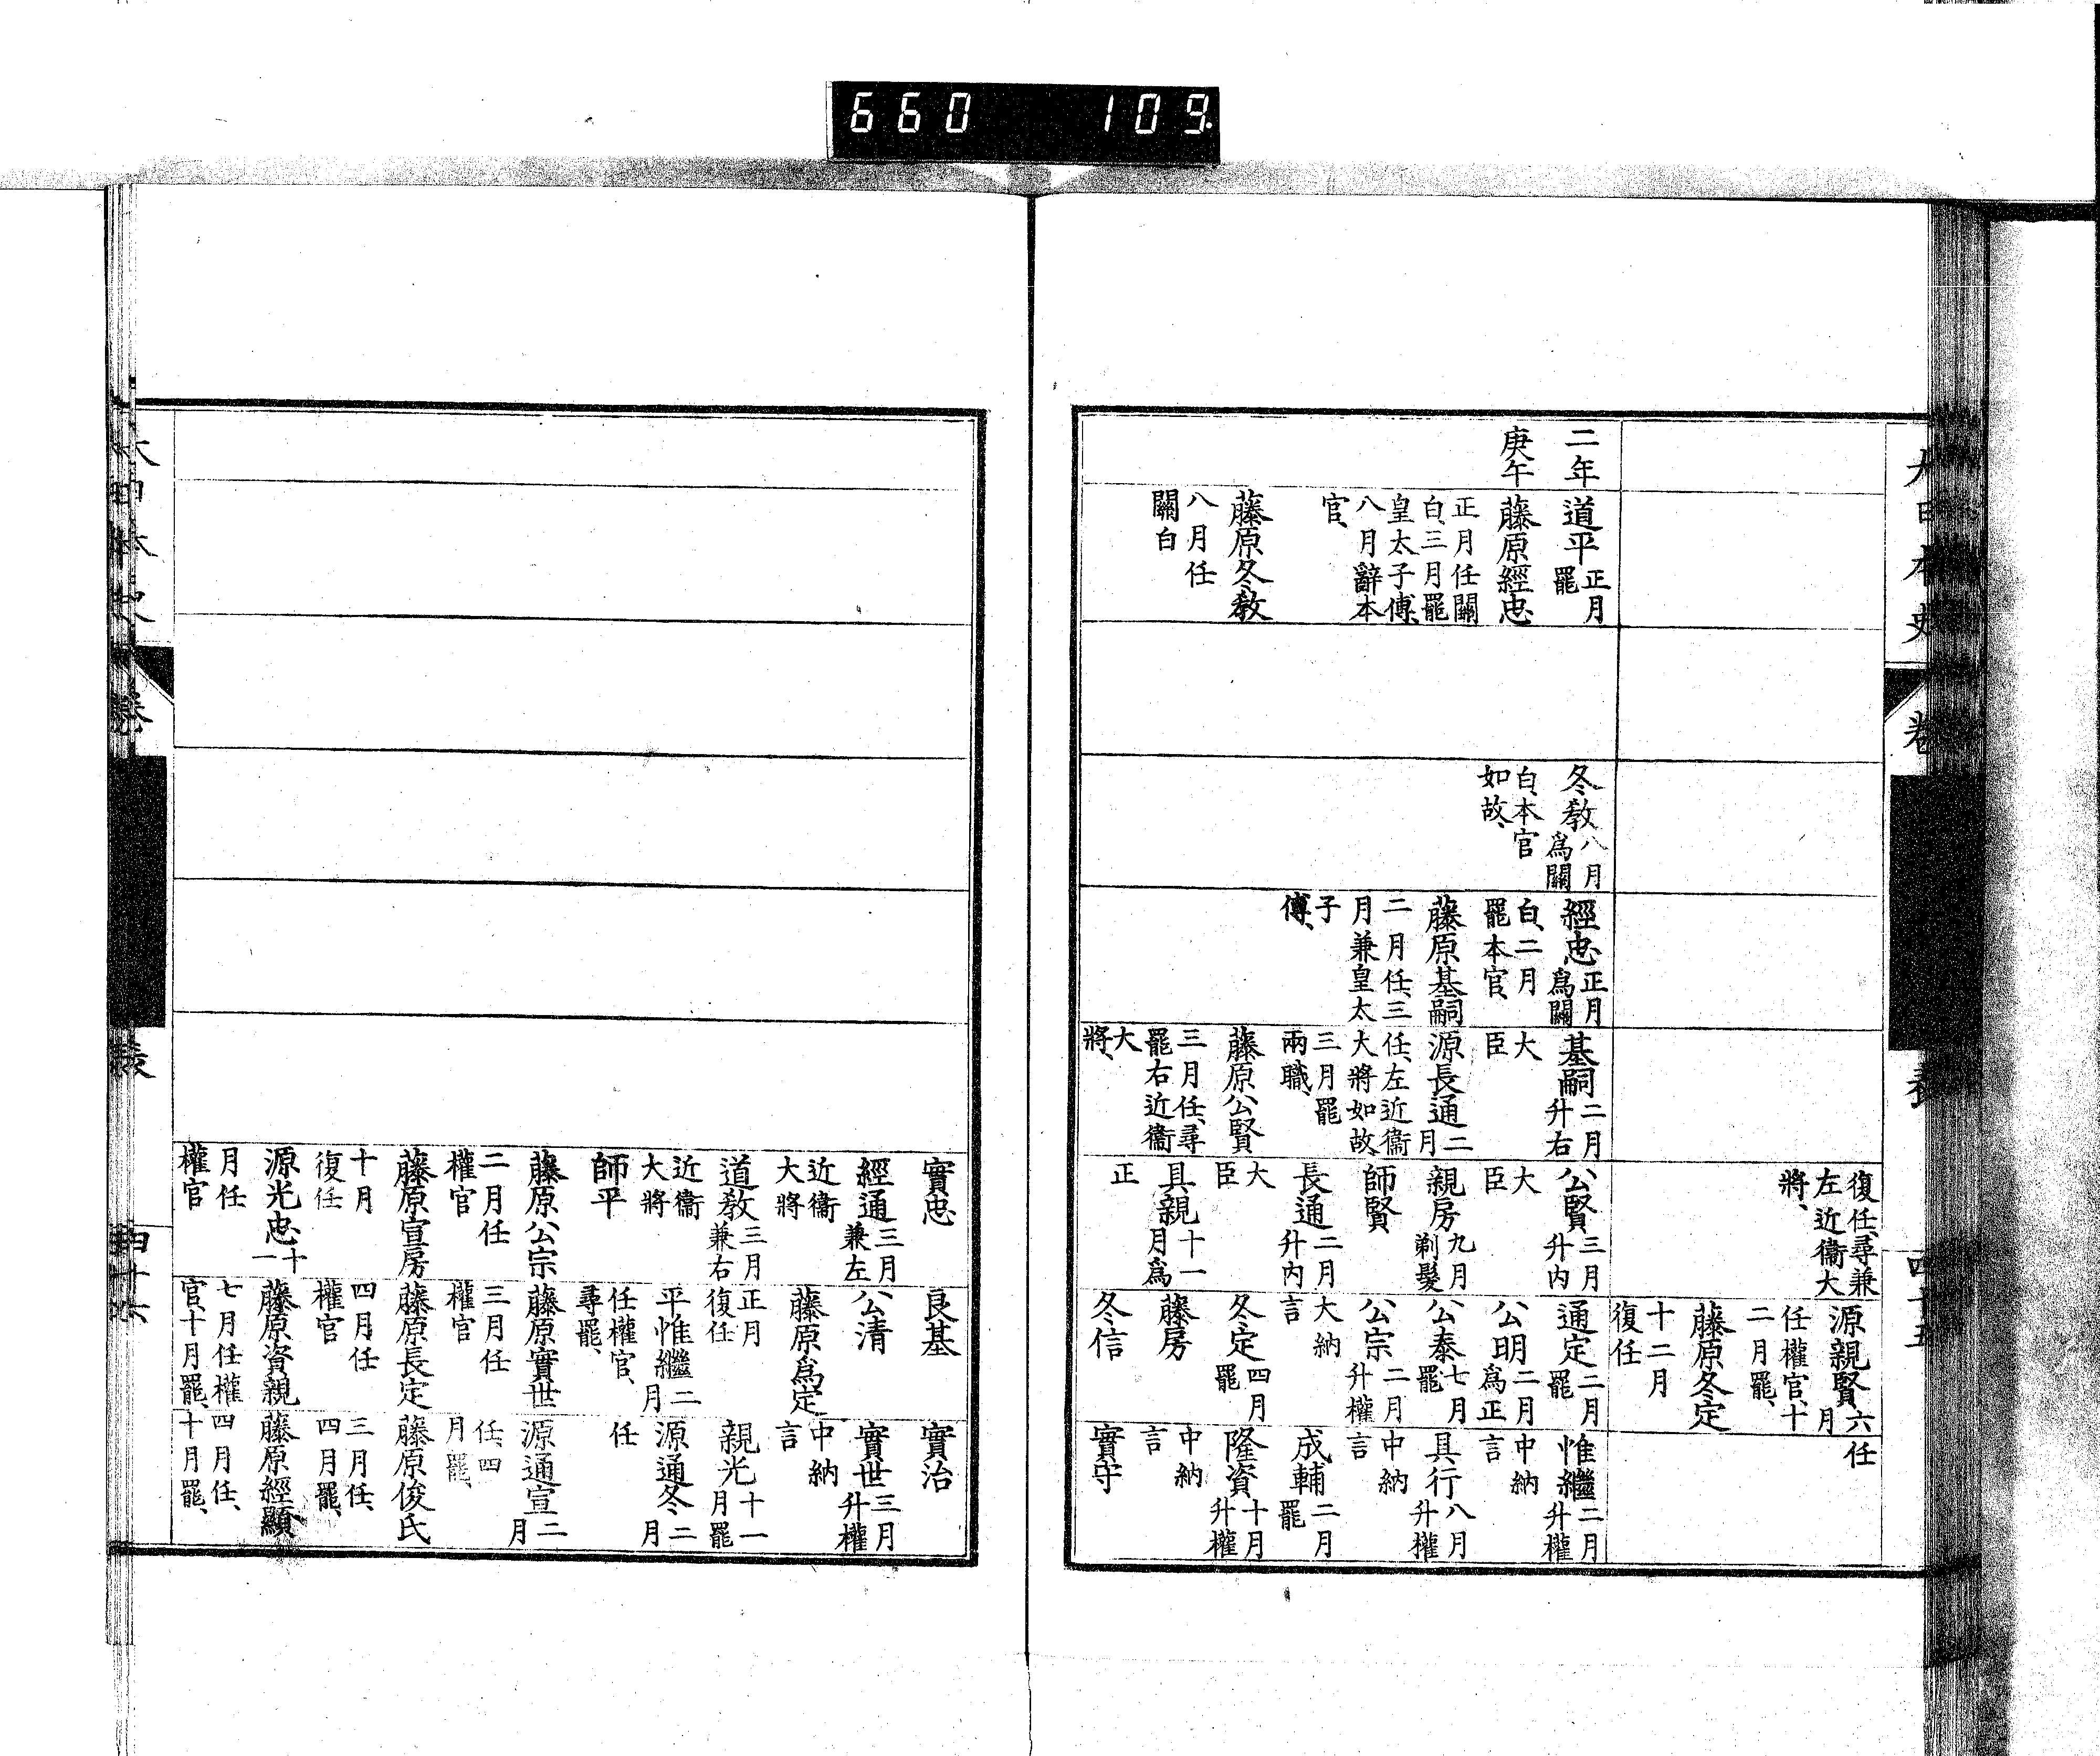 660 109
大日本史
卷
表
四十五
復任、尋兼
左近衞大
將、
源親賢六
月
任權官、十
二月罷、
藤原冬定
十二月
復任
任
二年
庚午
道平正月
罷
藤原經忠
正月任關
白、三月罷
皇太子傅、
八月辭本
官、
藤原冬教
八月任
關白
冬教八月
爲關
白、本官
如故、
經忠正月
爲關
白、二月
罷本官、
藤原基嗣
二月任、三
月兼皇太
子
傅、
基嗣二月
升右
大
臣
源長通二
月
任、左近衞
大將如故、
三月罷
兩職、
藤原公賢
三月任、尋
罷右近衞
大
將、
公賢三月
升內
大
臣
親房九月
剃髮
師賢
長通二月
升內
大
臣
具親十一
月爲
正
通定二月
罷
公明二月
爲正
公泰七月
罷
公宗二月
升權
大納
言
冬定四月
罷
藤房
冬信
惟繼二月
升權
中納
言
具行八月
升權
中納
言
成輔二月
罷
隆資十月
升權
中納
言
實守
實忠
經通三月
兼左
近衞
大將
道教三月
兼右
近衞
大將
師平
藤原公宗
二月任
權官
藤原宣房
十月
復任
源光忠十
一
月任
權官
良基
公清
藤原爲定
正月
復任
平惟繼二
月
任權官、
尋罷、
藤原實世
三月任
權官
藤原長定
四月任
權官
藤原資親
七月任權
官、十月罷、
實治
實世三月
升權
中納
言
親光十一
月罷
源通冬二
月
任
源通宣二
月
任、四
月罷、
藤原俊氏
三月任、
四月罷、
藤原經顯
四月任、
十月罷、
大日本史
卷
表
四十六